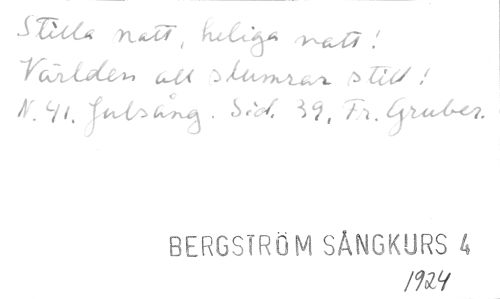 Stilla natt, heliga natt!
Världen all slumrar still!
N. 41. Julsång. Sid. 39, Fr. Gruber.
BERGSTRÖM SÅNGKURS 4
1924